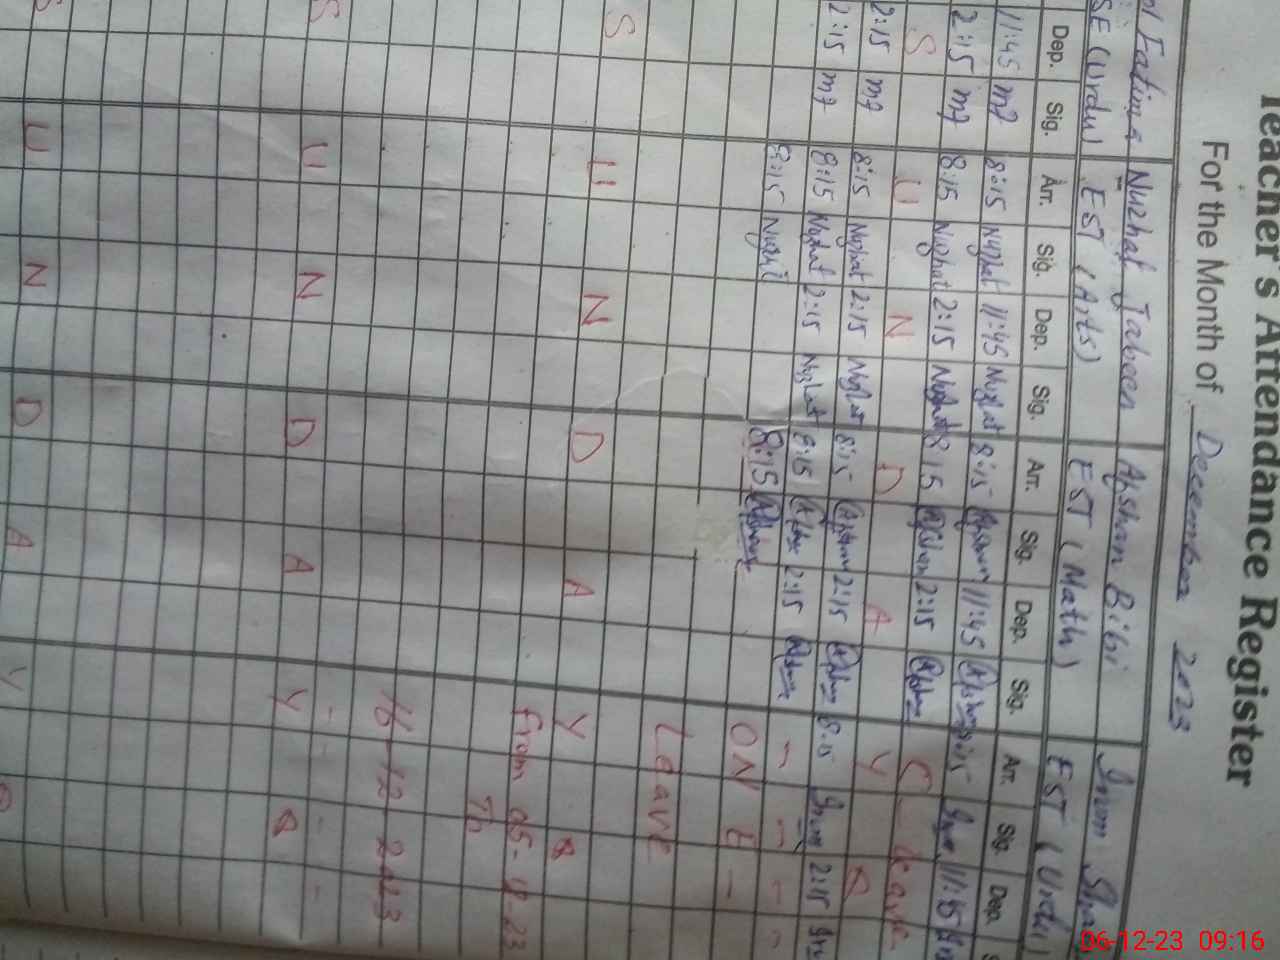 Teacher's Attendance Register
For the Month of December 2023
Fatima Nuzhat Jabeen Afshan Bibi Irum
SE (Urdu) EST (Arts) EST (Math) EST (Urdu)
Dep. Sig. Arr. Sig. Dep. Sig. Arr. Sig. Dep. Sig. Arr. Sig. Dep.
11:45 8:15 Nuzhat 11:45 Nuzhat 8:15 Afshan 11:45 Afshan 8:15 Irum 11:15
2:15 8:15 Nuzhat 2:15 Nuzhat 8:15 Afshan 2:15 Afshan C-Leave
S U N D A Y
2:15 8:15 Nuzhat 2:15 Nuzhat 8:15 Afshan 2:15 Afshan 8:15 Irum 2:15
2:15 8:15 Nuzhat 2:15 Nuzhat 8:15 2:15
8:15 Nuzhat 8:15 Afshan ON E -
Leave
S U N D A Y
from 05-12-23
To
16-12-2023
S U N D A Y
S U N D A Y
06-12-23 09:16